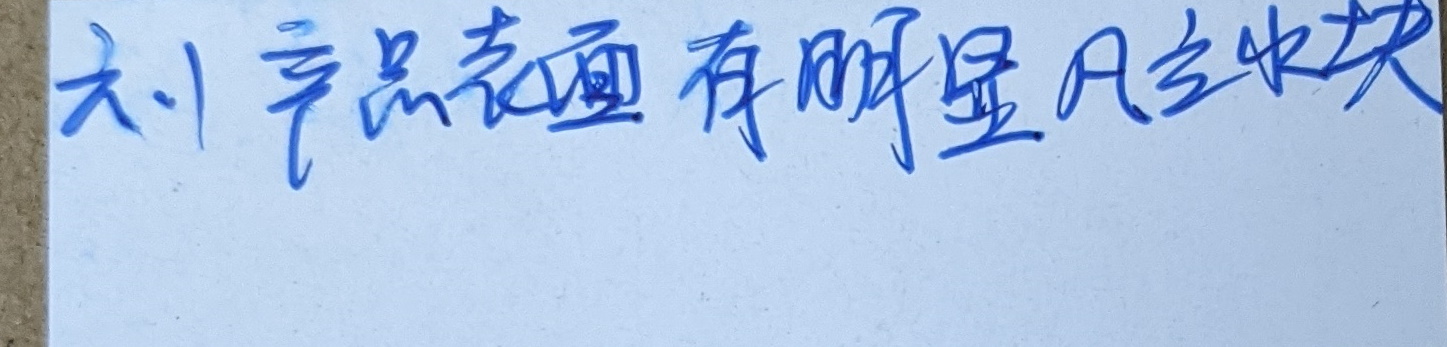 刘章品表面有明显凡立水块